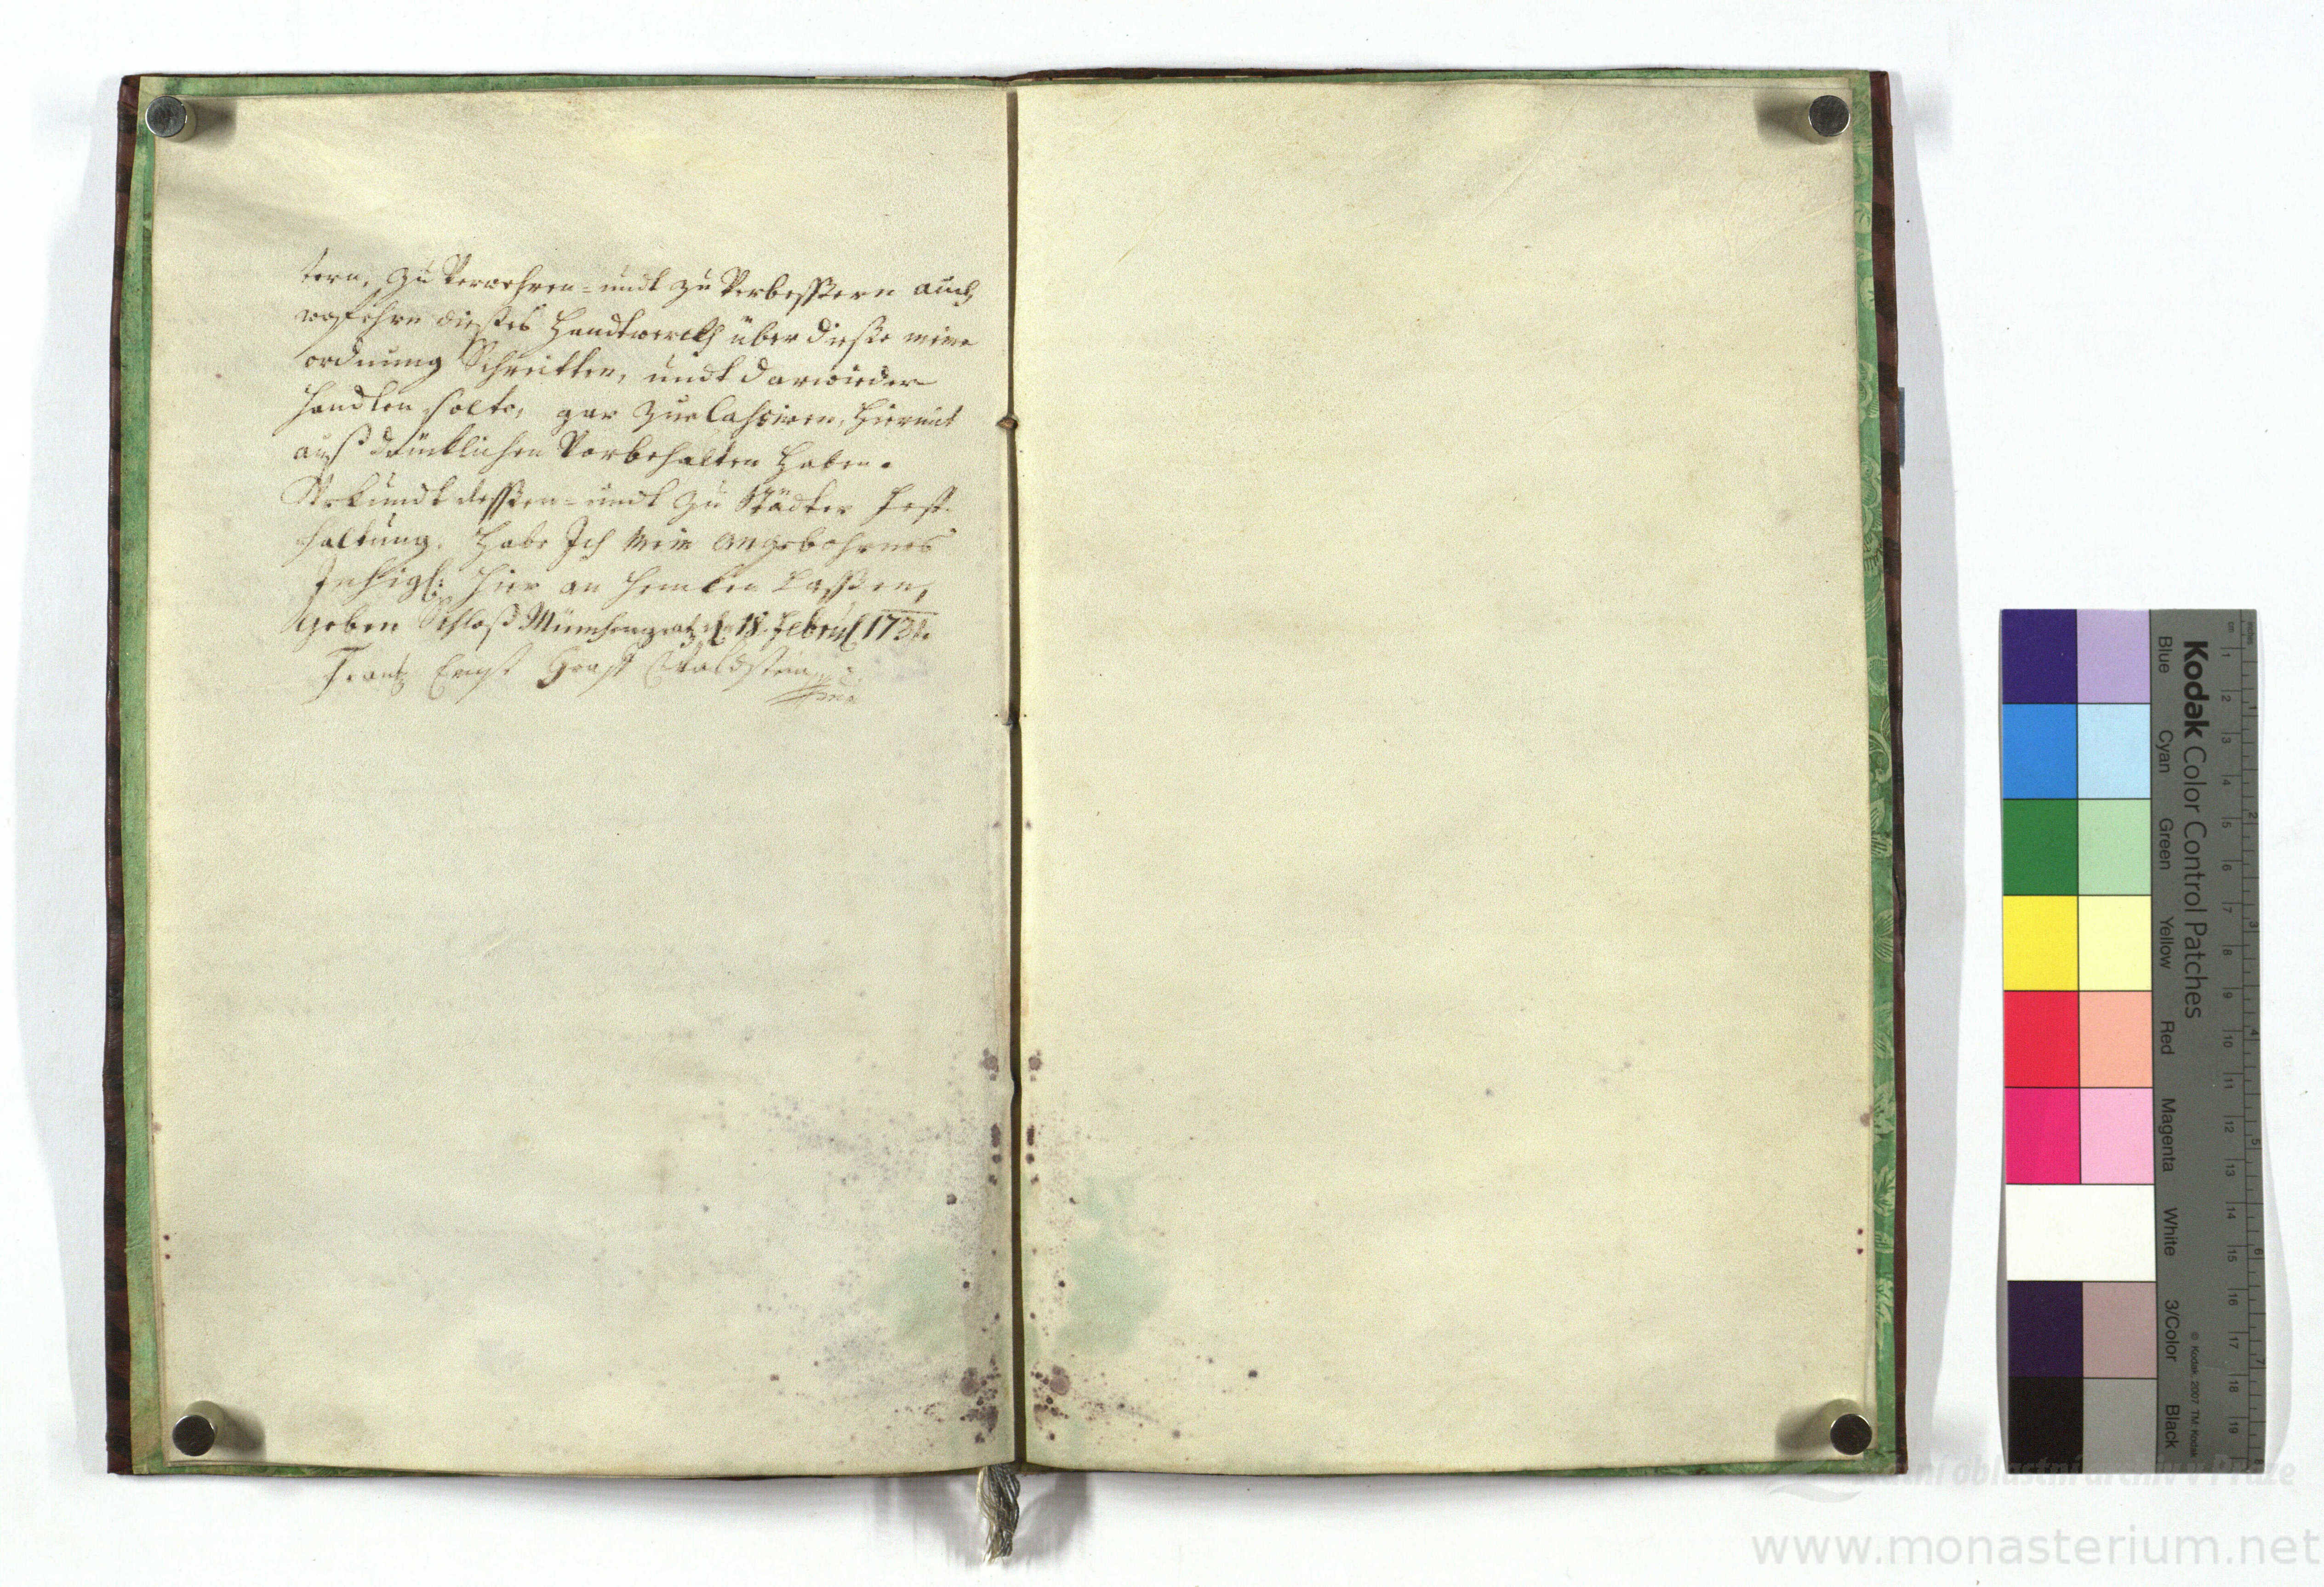 tern, zu Vermehren= undt zu Verbeßern auch
wofehrn dießes Handtwerckh über dieße meine
ordnung Schreitten, undt darwieder
handlen solte, gar zue Cahsiren, hiermit
außdrücklichen Vorbehalten haben.
Uhrkundt deßen= undt zu Städter fest-
haltung. Habe Ich Mein angebohrnes
Insigl: hier an henken Laßen,
geben Schloß Münchengratz d. 18. Februarÿ 173
Frantz Ernst Graff v Waldstein
mp
Kodak Color Control Patches
Blue Cyan Green Yellow Red Magenta White 3/Color Black
© Kodak, 2007 TM: Kodak
inches
cm 1 2 3 4 5 6 7 8 9 10 11 12 13 14 15 16 17 18 19
1 2 3 4 5 6 7
oblastní archiv v Praze
www.monasterium.net